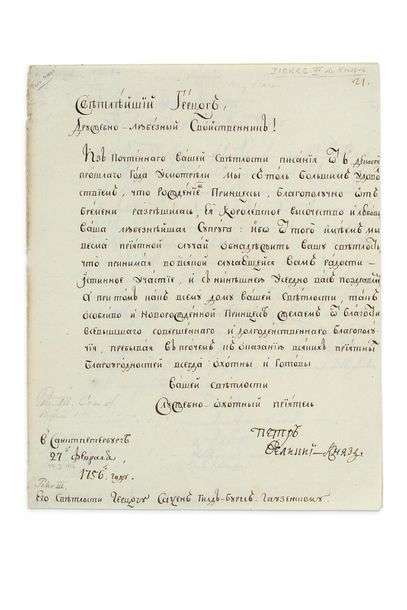 21.
Свѣтлѣйшій Герцогъ,
Дружебно-любезный Свойственникъ!
Изъ Почтеннаго вашей Свѣтлости писанія
прошлаго Года Усмотрѣли мы съ толь большимъ
ствіемъ, что Рожденіемъ Принцессы, благополучно отъ
бремени разрѣшилась, Ея Королевское высочество
ваша любезнѣйшая Супруга: ибо Чрезъ имѣемъ мы
весма пріятной случай обнадежить вашу свѣтлость
что принимая во всякой случающейся вамъ радости
Истинное Участіе, и съ нынѣшнею Усердно васъ поздравляя
А при томъ какъ всему дому вашей Свѣтлости, такъ
особливо и Новорожденной Принцессѣ желаемъ
всевышшаго совершеннаго и долгоденственнаго благополу
чія, пребывая въ прочемъ къ оказанію всякихъ пріятныхъ
Благоугодностей всегда охотны и Готовы
Вашей Свѣтлости
Служебно-охотный пріятель
Петръ
Великій-Князь
въ Санктпетербургѣ
27º февраля
1756º году
Его Свѣтлости Герцогу Саксенъ Гилдъ-Бургъ-Гаузенскому.